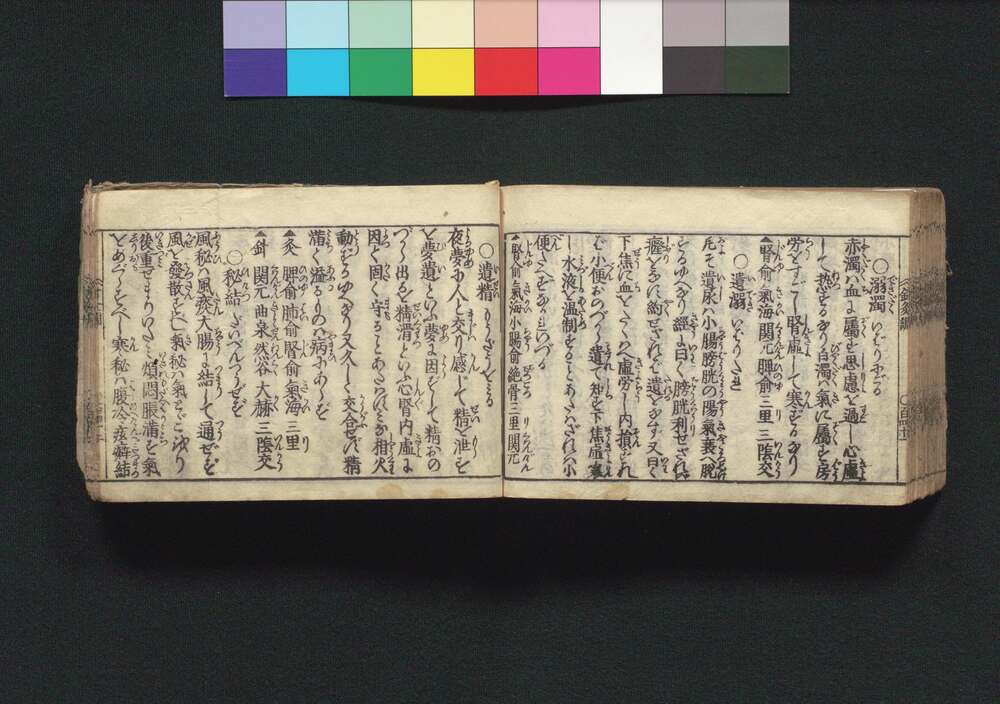 ○溺濁 いばりにごる
赤濁ハ血に属す思慮を過し心虚
して熱するなり白濁ハ氣に属す房
労をすごし腎虚して寒するなり
▲腎俞氣海関元脾俞三里三陰交
○遺溺
凡そ遺尿ハ小腸膀胱の陽氣衰へ脱
するゆへなり経に曰く膀胱利せざれば
癃をなし約せざれば遺をなす又曰く
下焦に血をたくハへ虚労し内損すれ
ば小便おのづから遺て知ず下焦虚寒
し水液を温制することあたハざれバ小
便
▲腎俞氣海小腸俞絶骨三里関元
○遺精
夜夢に人と交り感じて精泄を
夢遺といふ夢に因ずして精おの
づから出るを精滑といふ心腎内虚に
因て固く守ることあたハず相火
動するゆへなり又久しく交合せず精
満て溢るるもの病にあらず
▲灸 脾俞肺俞腎俞氣海三里
▲針 関元曲泉然谷大赫三陰交
○秘結 だいべんつうぜず
風秘ハ風燥大腸に結して通ぜず
風を發散すべし氣秘ハ氣とどこほり
後重せまりいたミ煩悶脹満す氣
をめぐらすべし寒秘ハ腹冷痃癖結